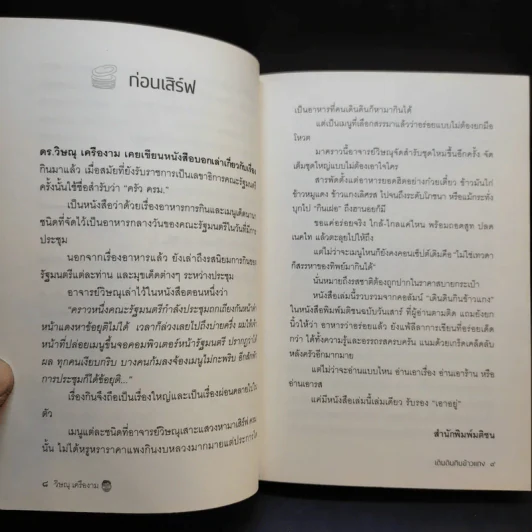 ก่อนเสิร์ฟ
ดร.วิษณุ เครืองาม เคยเขียนหนังสือบอกเล่าเกี่ยวกับเรื่อง
กินมาแล้ว เมื่อสมัยที่ยังรับราชการเป็นเลขาธิการคณะรัฐมนตรี
ครั้งนั้นใช้ชื่อสำรับว่า "ครัว ครม."
เป็นหนังสือว่าด้วยเรื่องอาหารการกินและเมนูเด็ดนานา
ชนิดที่จัดไว้เป็นอาหารกลางวันของคณะรัฐมนตรีในวันที่มีการ
ประชุม
นอกจากเรื่องอาหารแล้ว ยังเล่าถึงรสนิยมการกินของ
รัฐมนตรีแต่ละท่าน และมุขเด็ดต่างๆ ระหว่างประชุม
อาจารย์วิษณุเล่าไว้ในหนังสือตอนหนึ่งว่า
"คราวหนึ่งคณะรัฐมนตรีกำลังประชุมถกเถียงกันหน้าดำ
หน้าแดงหาข้อยุติไม่ได้ เวลาก็ล่วงเลยไปถึงบ่ายครึ่ง ผมใช้เจ้า
หน้าที่ปล่อยเมนูขึ้นจอคอมพิวเตอร์หน้ารัฐมนตรี ปรากฏว่าได้
ผล ทุกคนเงียบกริบ บางคนก้มลงจ้องเมนูไม่กะพริบ อีกสักพัก
การประชุมก็ได้ข้อยุติ..."
เรื่องกินจึงถือเป็นเรื่องใหญ่และเป็นเรื่องผ่อนคลายไปใน
ตัว
เมนูแต่ละชนิดที่อาจารย์วิษณุเสาะแสวงหามาเสิร์ฟ ครม.
นั้น ไม่ได้หรูหราราคาแพงกินงบหลวงมากมายแต่ประการใด
๘ วิษณุ เครืองาม
เป็นอาหารที่คนเดินดินก็หามากินได้
แต่เป็นเมนูที่เลือกสรรมาแล้วว่าอร่อยแบบไม่ต้องยกมือ
โหวต
มาคราวนี้อาจารย์วิษณุจัดสำรับชุดใหม่ขึ้นอีกครั้ง จัด
เต็มชุดใหญ่แบบไม่ต้องเอาใจใคร
สารพัดตั้งแต่อาหารยอดฮิตอย่างก๋วยเตี๋ยว ข้าวมันไก่
ข้าวหมูแดง ข้าวแกงเด็ดรส ไปจนถึงระดับโภชนา หรือแม้กระทั่ง
บุกไป "กินเฝอ" ถึงฮานอยก็มี
ขอแค่อร่อยจริง ใกล้-ไกลแค่ไหน พร้อมถอดสูท ปลด
เนคไท แล้วตะลุยไปให้ถึง
แต่ไม่ว่าจะเมนูไหนก็ยังคงคอนเซ็ปต์เดิมคือ "ไม่ใช่เทวดา
ก็สรรหาของทิพย์มากินได้"
นั่นหมายถึงรสชาติต้องถูกปากในราคาสบายกระเป๋า
หนังสือเล่มนี้รวบรวมจากคอลัมน์ "เดินดินกินข้าวแกง"
ในหนังสือพิมพ์มติชนฉบับวันเสาร์ ที่ผู้อ่านตามติด แถมยังยก
นิ้วให้ว่า อาหารว่าอร่อยแล้ว ยังแพ้ลีลาการเขียนที่อร่อยเด็ด
กว่า ได้ทั้งความรู้และอรรถรสครบครัน แนมด้วยเกร็ดเคล็ดลับ
หลังครัวอีกมากมาย
แต่ไม่ว่าจะอ่านแบบไหน อ่านเอาเรื่อง อ่านเอาร้าน หรือ
อ่านเอารส
แค่มีหนังสือเล่มนี้เล่มเดียว รับรอง "เอาอยู่"
สำนักพิมพ์มติชน
เดินดินกินข้าวแกง ๙